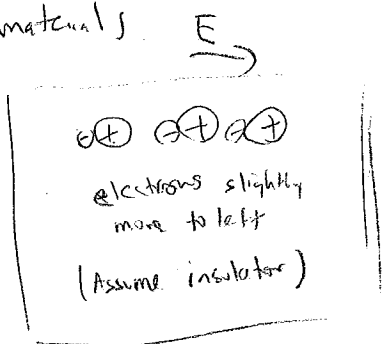 materials
E
⊖⊕ ⊖⊕ ⊖⊕
electrons slightly
more to left
(Assume insulator)